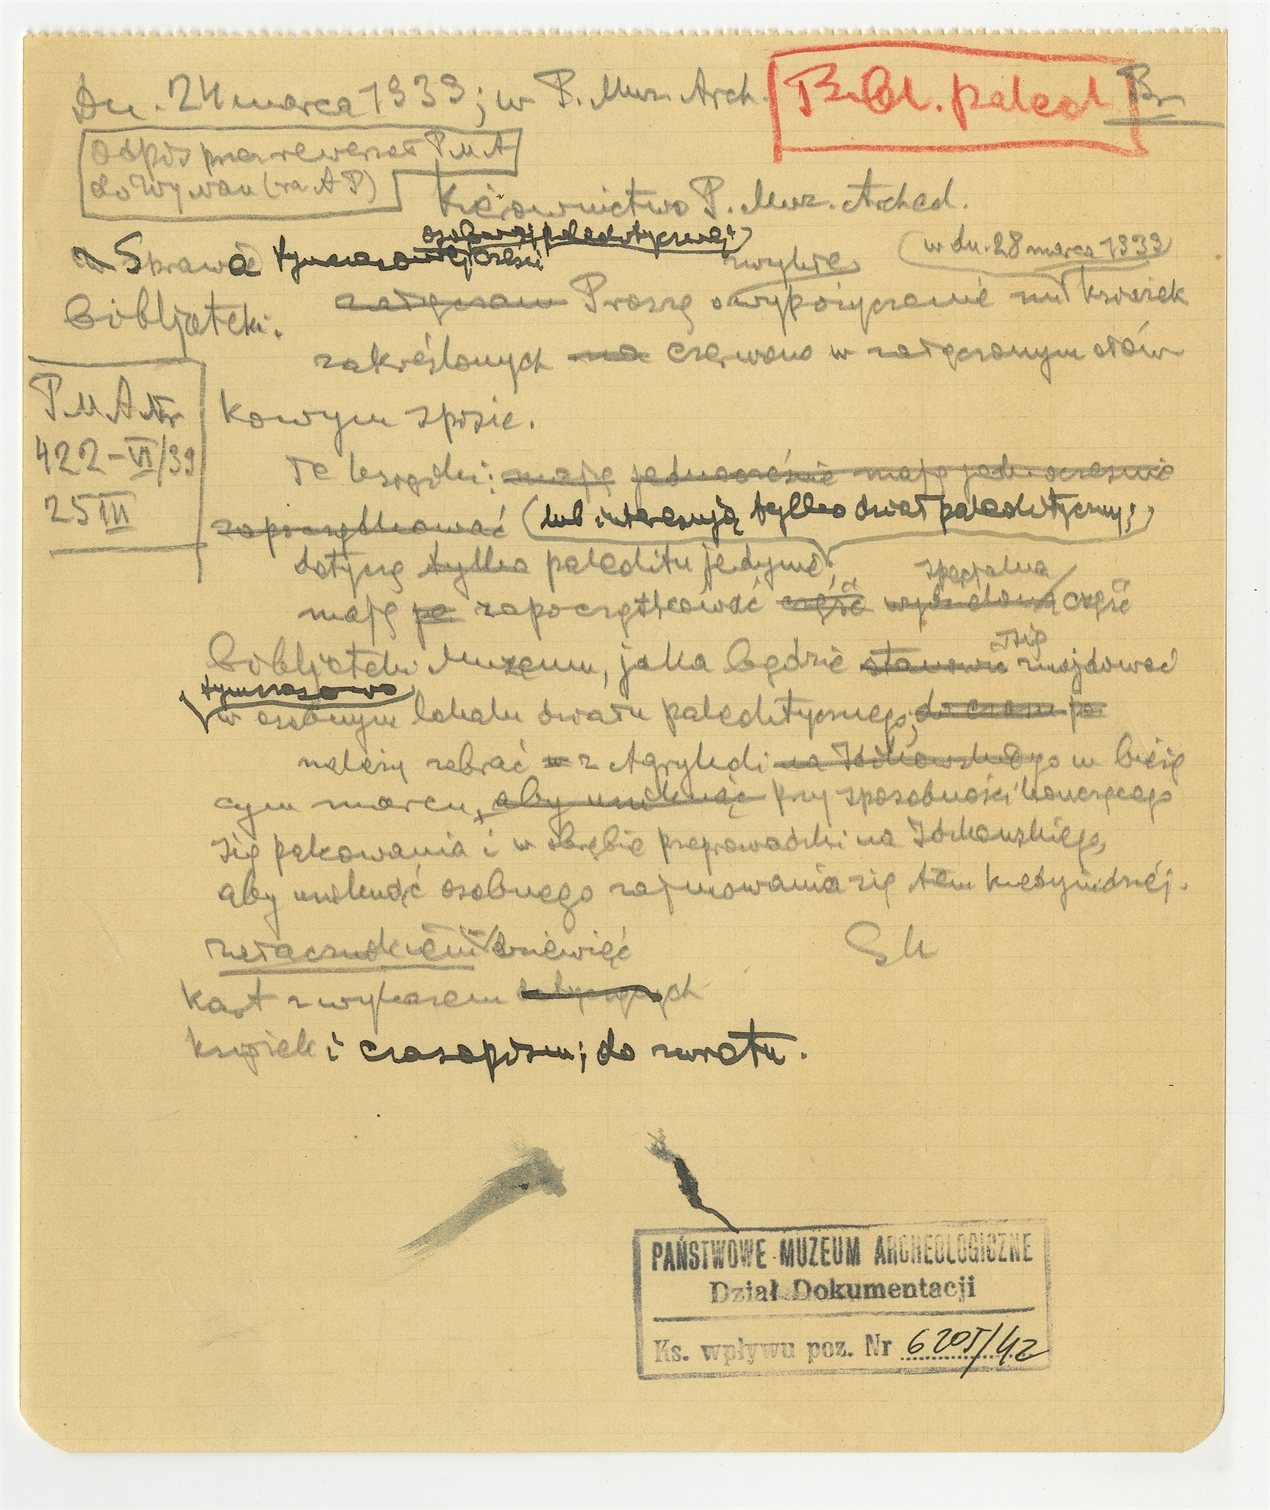 Dn. 24 marca 1939; w P. Muz. Arch.
Bibl. paleol
Br
Odpis przez rewersał P M A
do Wywan (na A P)
Kierownictwo P. Muz. Archeol.
osobnej paleolitycznej
Sprawa tymczasowej części
zwykłe
(w dn. 28 marca 1939)
bibljoteki.
załączam Proszę o wypożyczenie mi książek
zakreślonych na czerwono w załączonym ołów
kowym spisie.
P M A Nr
422-VI/39
25 III
Te książki: mają jednocześnie mają jednocześnie
zapoczątkować (lub interesują tylko dział paleolityczny;)
dotyczą tylko paleolitu jedynie;
specjalna
mają po zapoczątkować część wydzieloną część
się
bibljoteki Muzeum, jaka będzie stanowić znajdować
tymczasowo
w osobnym lokalu działu paleolitycznego; do czasu po
należy zebrać w z Agrykoli na Idźkowskiego w bieżą
cym marcu, aby uniknąć przy sposobności kończącego
się pakowania i w obrębie przeprowadzki na Idźkowskiego,
aby uniknąć osobnego zajmowania się tem kiedyindziej.
załącznikiem dziewięć
Sk
kart z wykazem dotyczących
książek i czasopism; do zwrotu.
PAŃSTWOWE MUZEUM ARCHEOLOGICZNE
Dział Dokumentacji
Ks. wpływu poz. Nr 6205/42